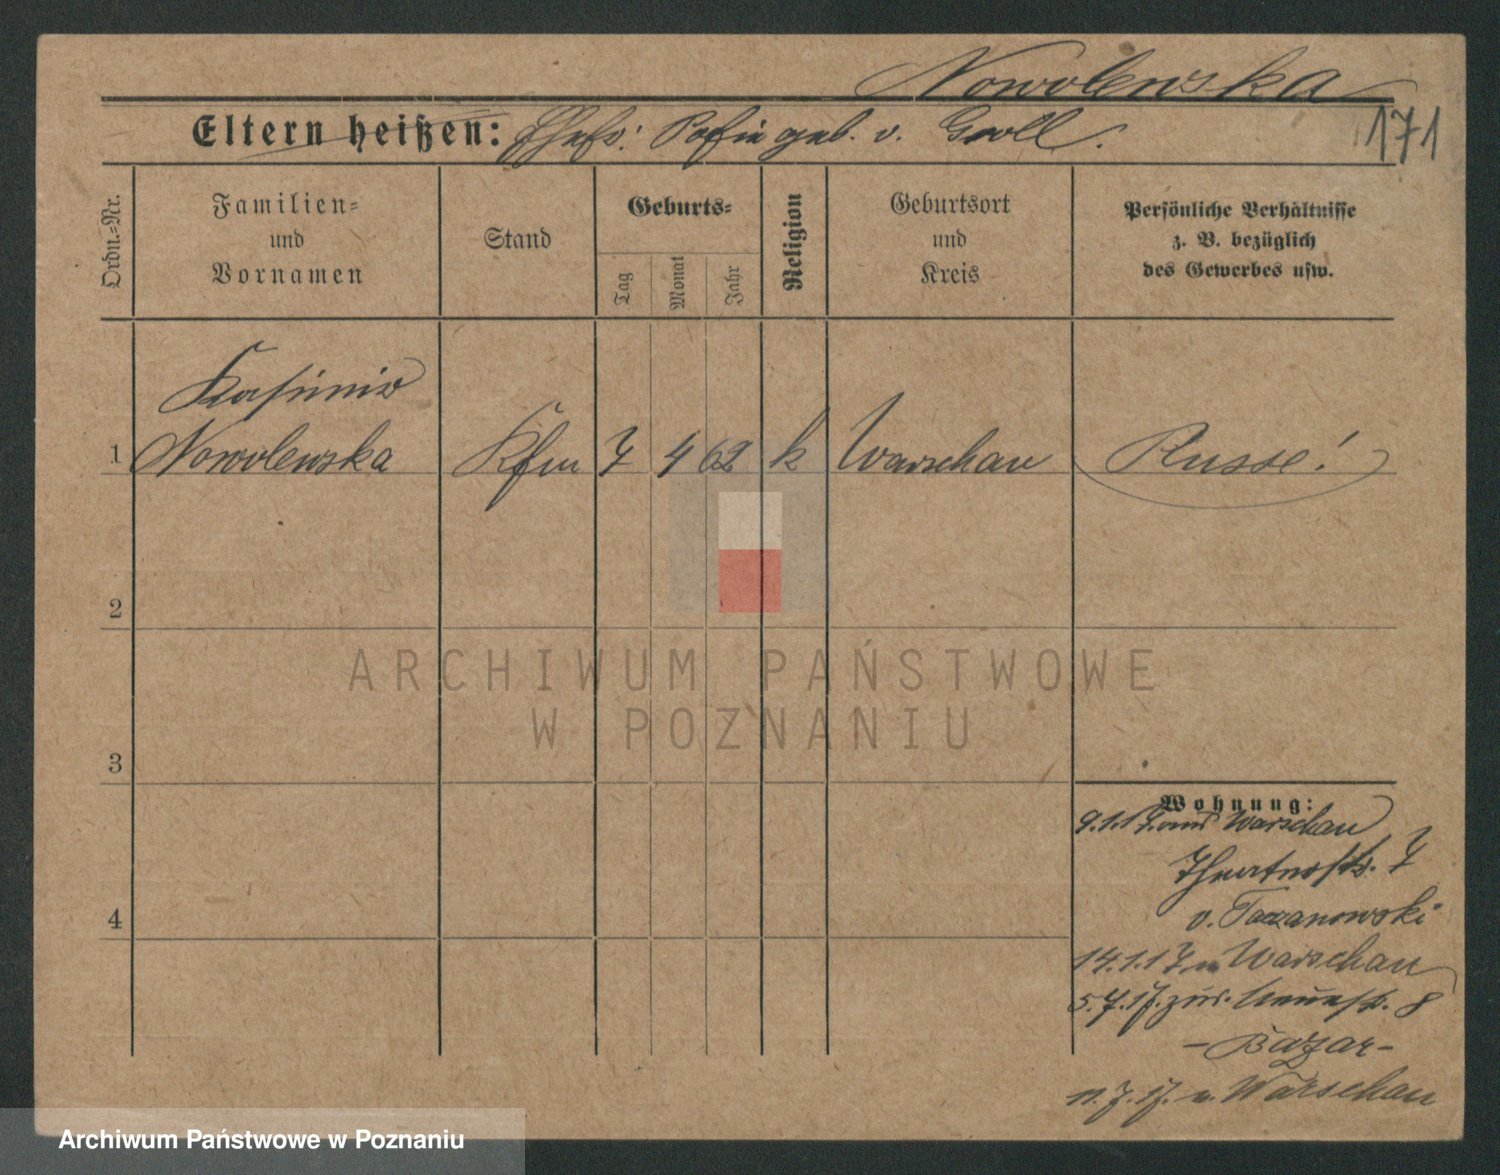 Nowolewska
171
Eltern heißen: Ehefr: Sofie geb. v. Groll.
Ordn.-Nr.
Familien- und Vornamen
Stand
Geburts-
Tag
Monat
Jahr
Religion
Geburtsort und Kreis
Persönliche Verhältnisse z. B. bezüglich des Gewerbes usw.
Kasimir
1 Nowolewska Kfm 7 4 62 k Warschau Russe!
2
3
4
Wohnung:
9.1.17. aus Warschau
Theaterstr. 7
v. Taczanowski
14.1.17. n Warschau
5.7.17. zur. Neuestr. 8
- Bazar -
11.7.17. n. Warschau
ARCHIWUM PAŃSTWOWE
W POZNANIU
Archiwum Państwowe w Poznaniu